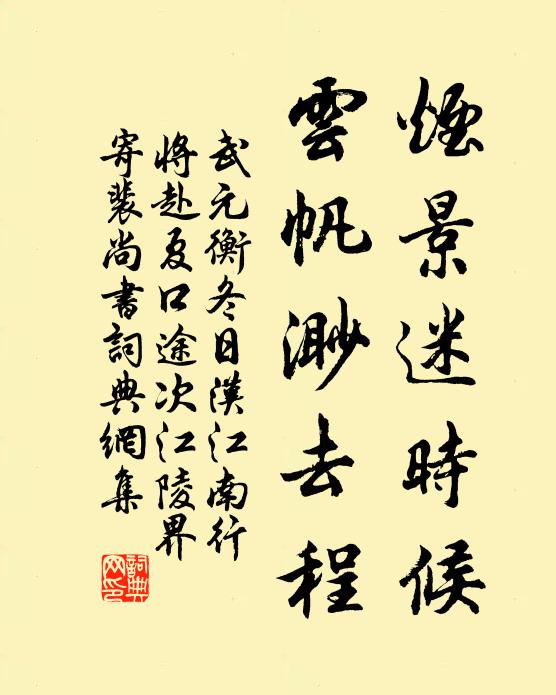 煙景迷時候
雲帆渺去程
武元衡冬日漢江南行
將赴夏口途次江陵界
寄裴尚書詞典網集
詞典
网印